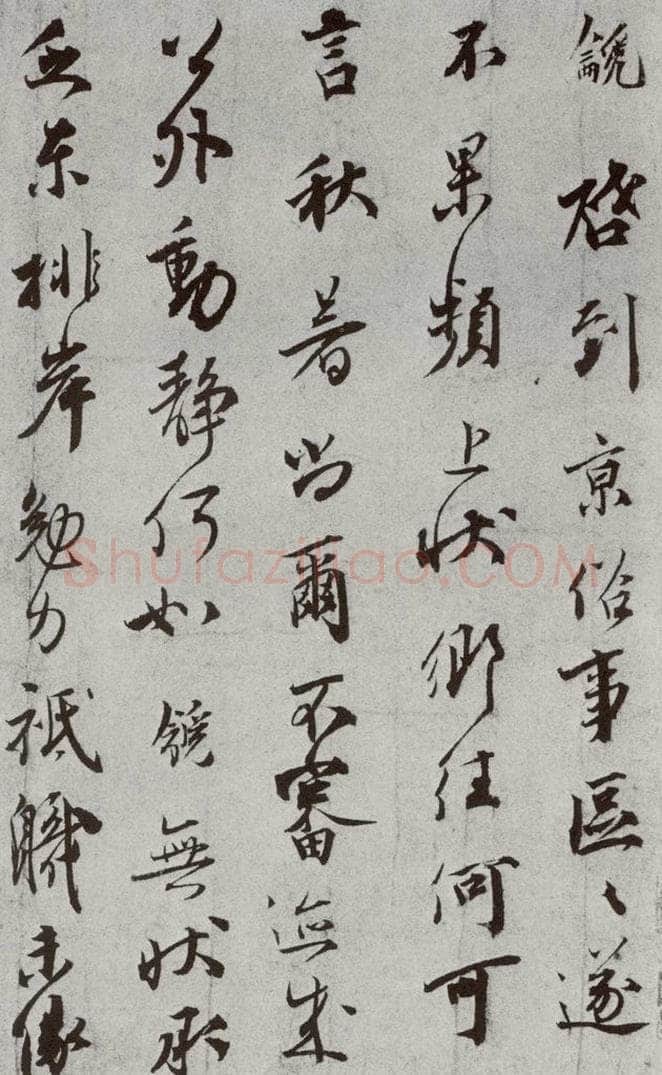 啓到京俗事區〻遂
不果頻上狀鄉往何可
言秋暑尚爾不審
公外動靜何如 無狀承
乏東排岸勉力祗職未
Shufaziliao.COM